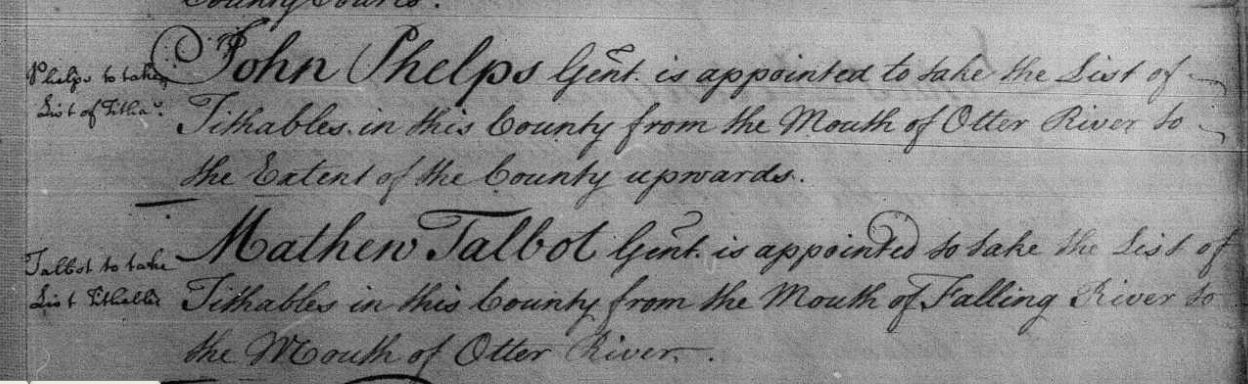 County Courts.
Phelps to take
List of Titha.s
John Phelps Gent. is appointed to take the List of
Tithables in this County from the Mouth of Otter River to
the Extent of the County upwards.
Talbot to take
List Tithables
Mathew Talbot Gent. is appointed to take the List of
Tithables in this County from the Mouth of Falling River to
the Mouth of Otter River.